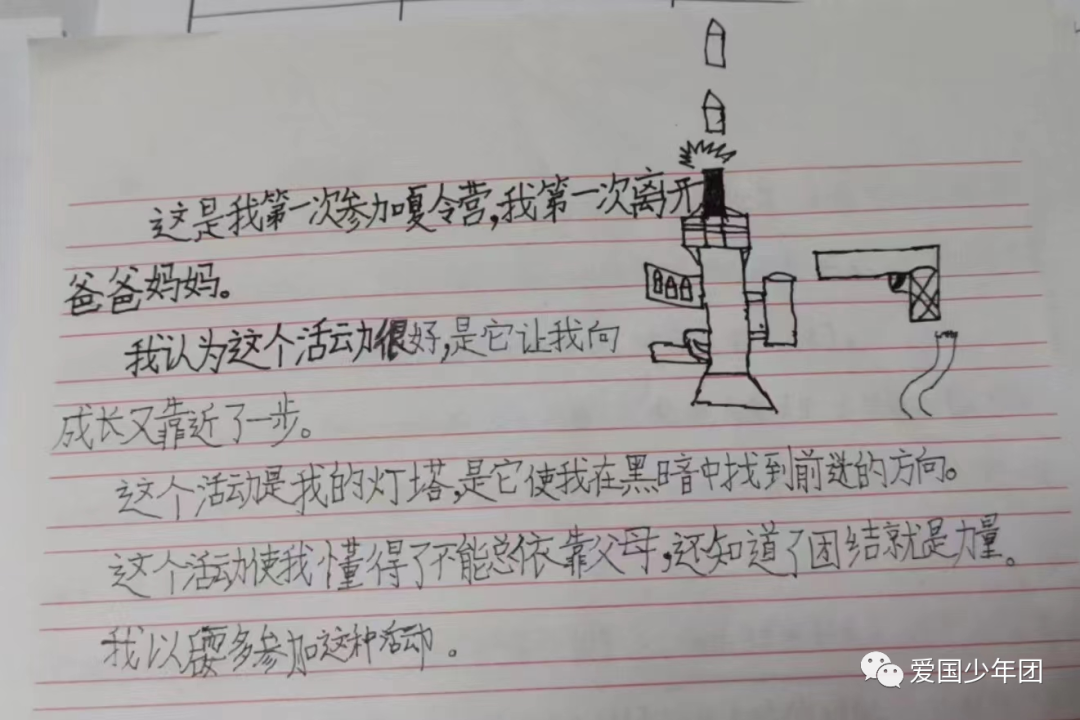 这是我第一次参加嘎令营,我第一次离开
爸爸妈妈。
我认为这个活动很好,是它让我向
成长又靠近了一步。
这个活动是我的灯塔,是它使我在黑暗中找到前进的方向。
这个活动使我懂得了不能总依靠父母,还知道了团结就是力量。
我以要多参加这种活动。
爱国少年团